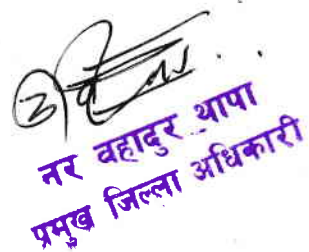 नर वहादुर थापा
प्रमुख जिल्ला अधिकारी